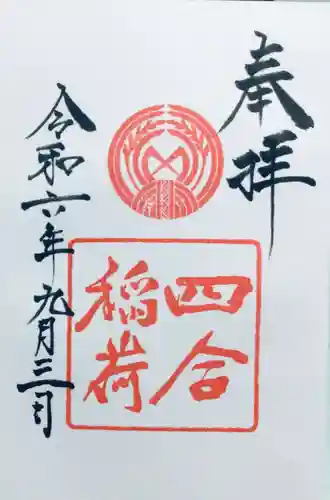 奉拝
四合
稲荷
令和六年九月三日